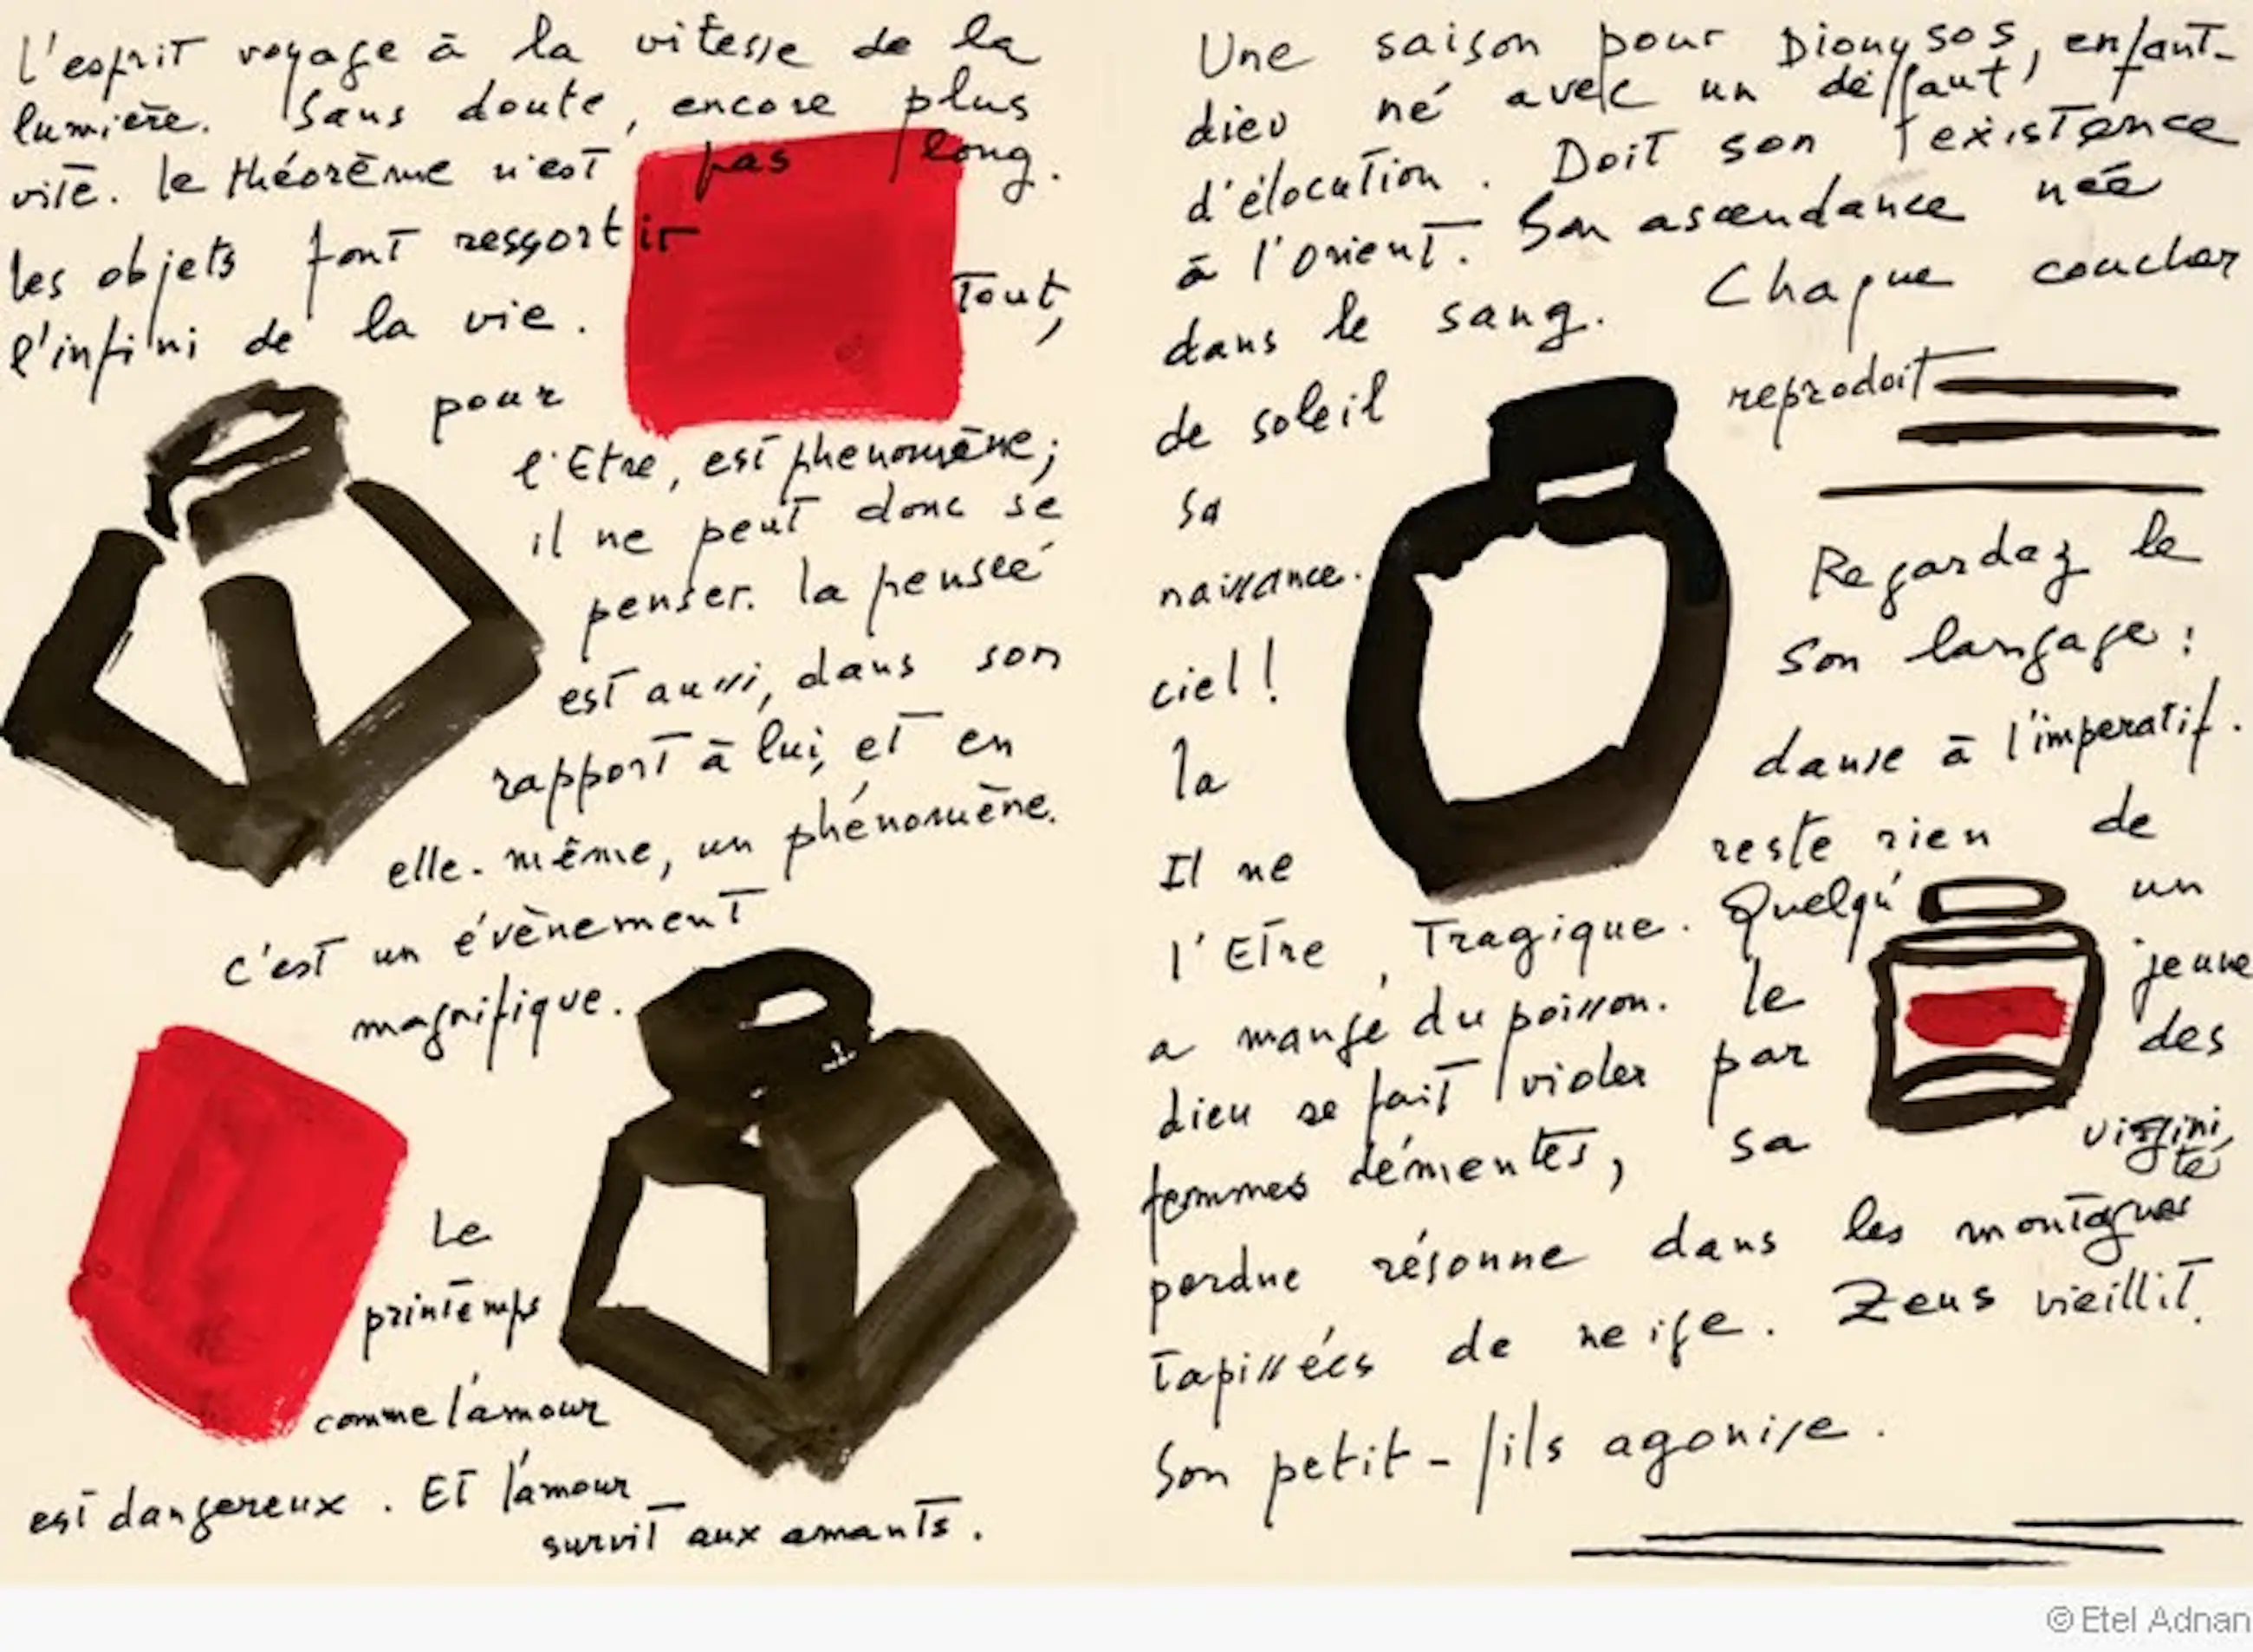 l'esprit voyage à la vitesse de la
lumière. Sans doute, encore plus
vite. le théorème n'est pas long.
les objets font ressortir
l'infini de la vie. Tout,
pour
l'Etre, est phenomène;
il ne peut donc se
penser. la pensée
est aussi, dans son
rapport à lui, et en
elle-même, un phénomène.
C'est un évènement
magnifique.
Le
printemps
comme l'amour
est dangereux. Et l'amour
survit aux amants.
Une saison pour Dionysos, enfant-
dieu né avec un deffaut,
d'élocution. Doit son existence
à l'Orient. Son ascendance née
dans le sang. Chaque coucher
de soleil reproduit
sa
naissance. Regardez le
ciel! Son langage:
la danse à l'imperatif.
Il ne reste rien de
l'Etre Tragique. Quelqu'un
a mangé du poisson. le jeune
dieu se fait violer par des
femmes démentes, sa virginité
perdue résonne dans les montagnes
tapissées de neige. Zeus vieillit.
Son petit-fils agonise.
© Etel Adnan